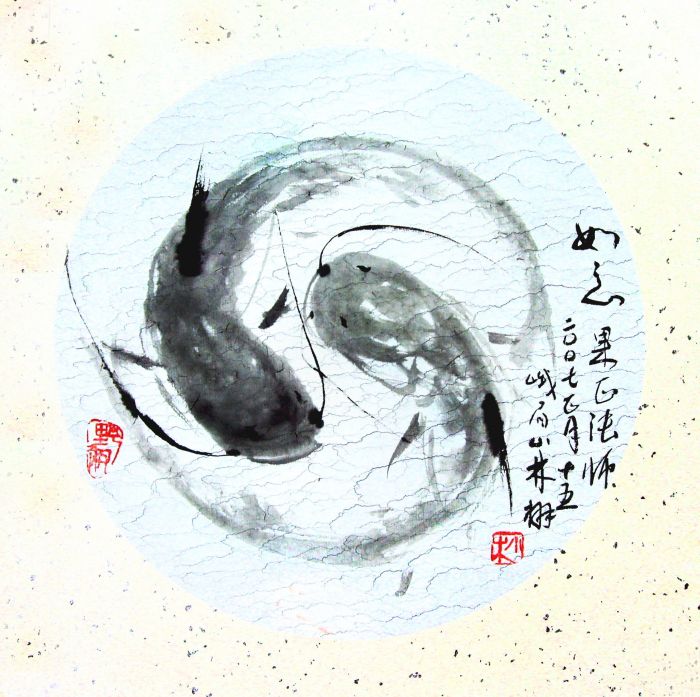 如意
果正法师
二〇〇七正月十五
峨眉山林栩